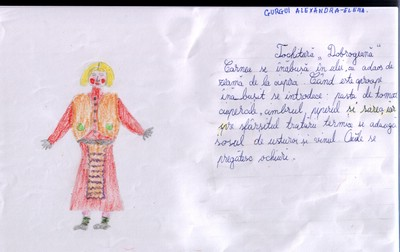 GURGUI ALEXANDRA-ELENA.
Tochitură „Dobrogeană"
Carnea se înăbușă în ulei, cu adaos de
zeamă de la ciuperci. Când este aproape
înăbușit se introduce: pasta de tomate
ciupercile, cimbrul, piperul și sarea, iar
spre sfârșitul tratării termice se adaugă
sosul de usturoi și vinul. Ouăle se
pregătesc ochiuri.